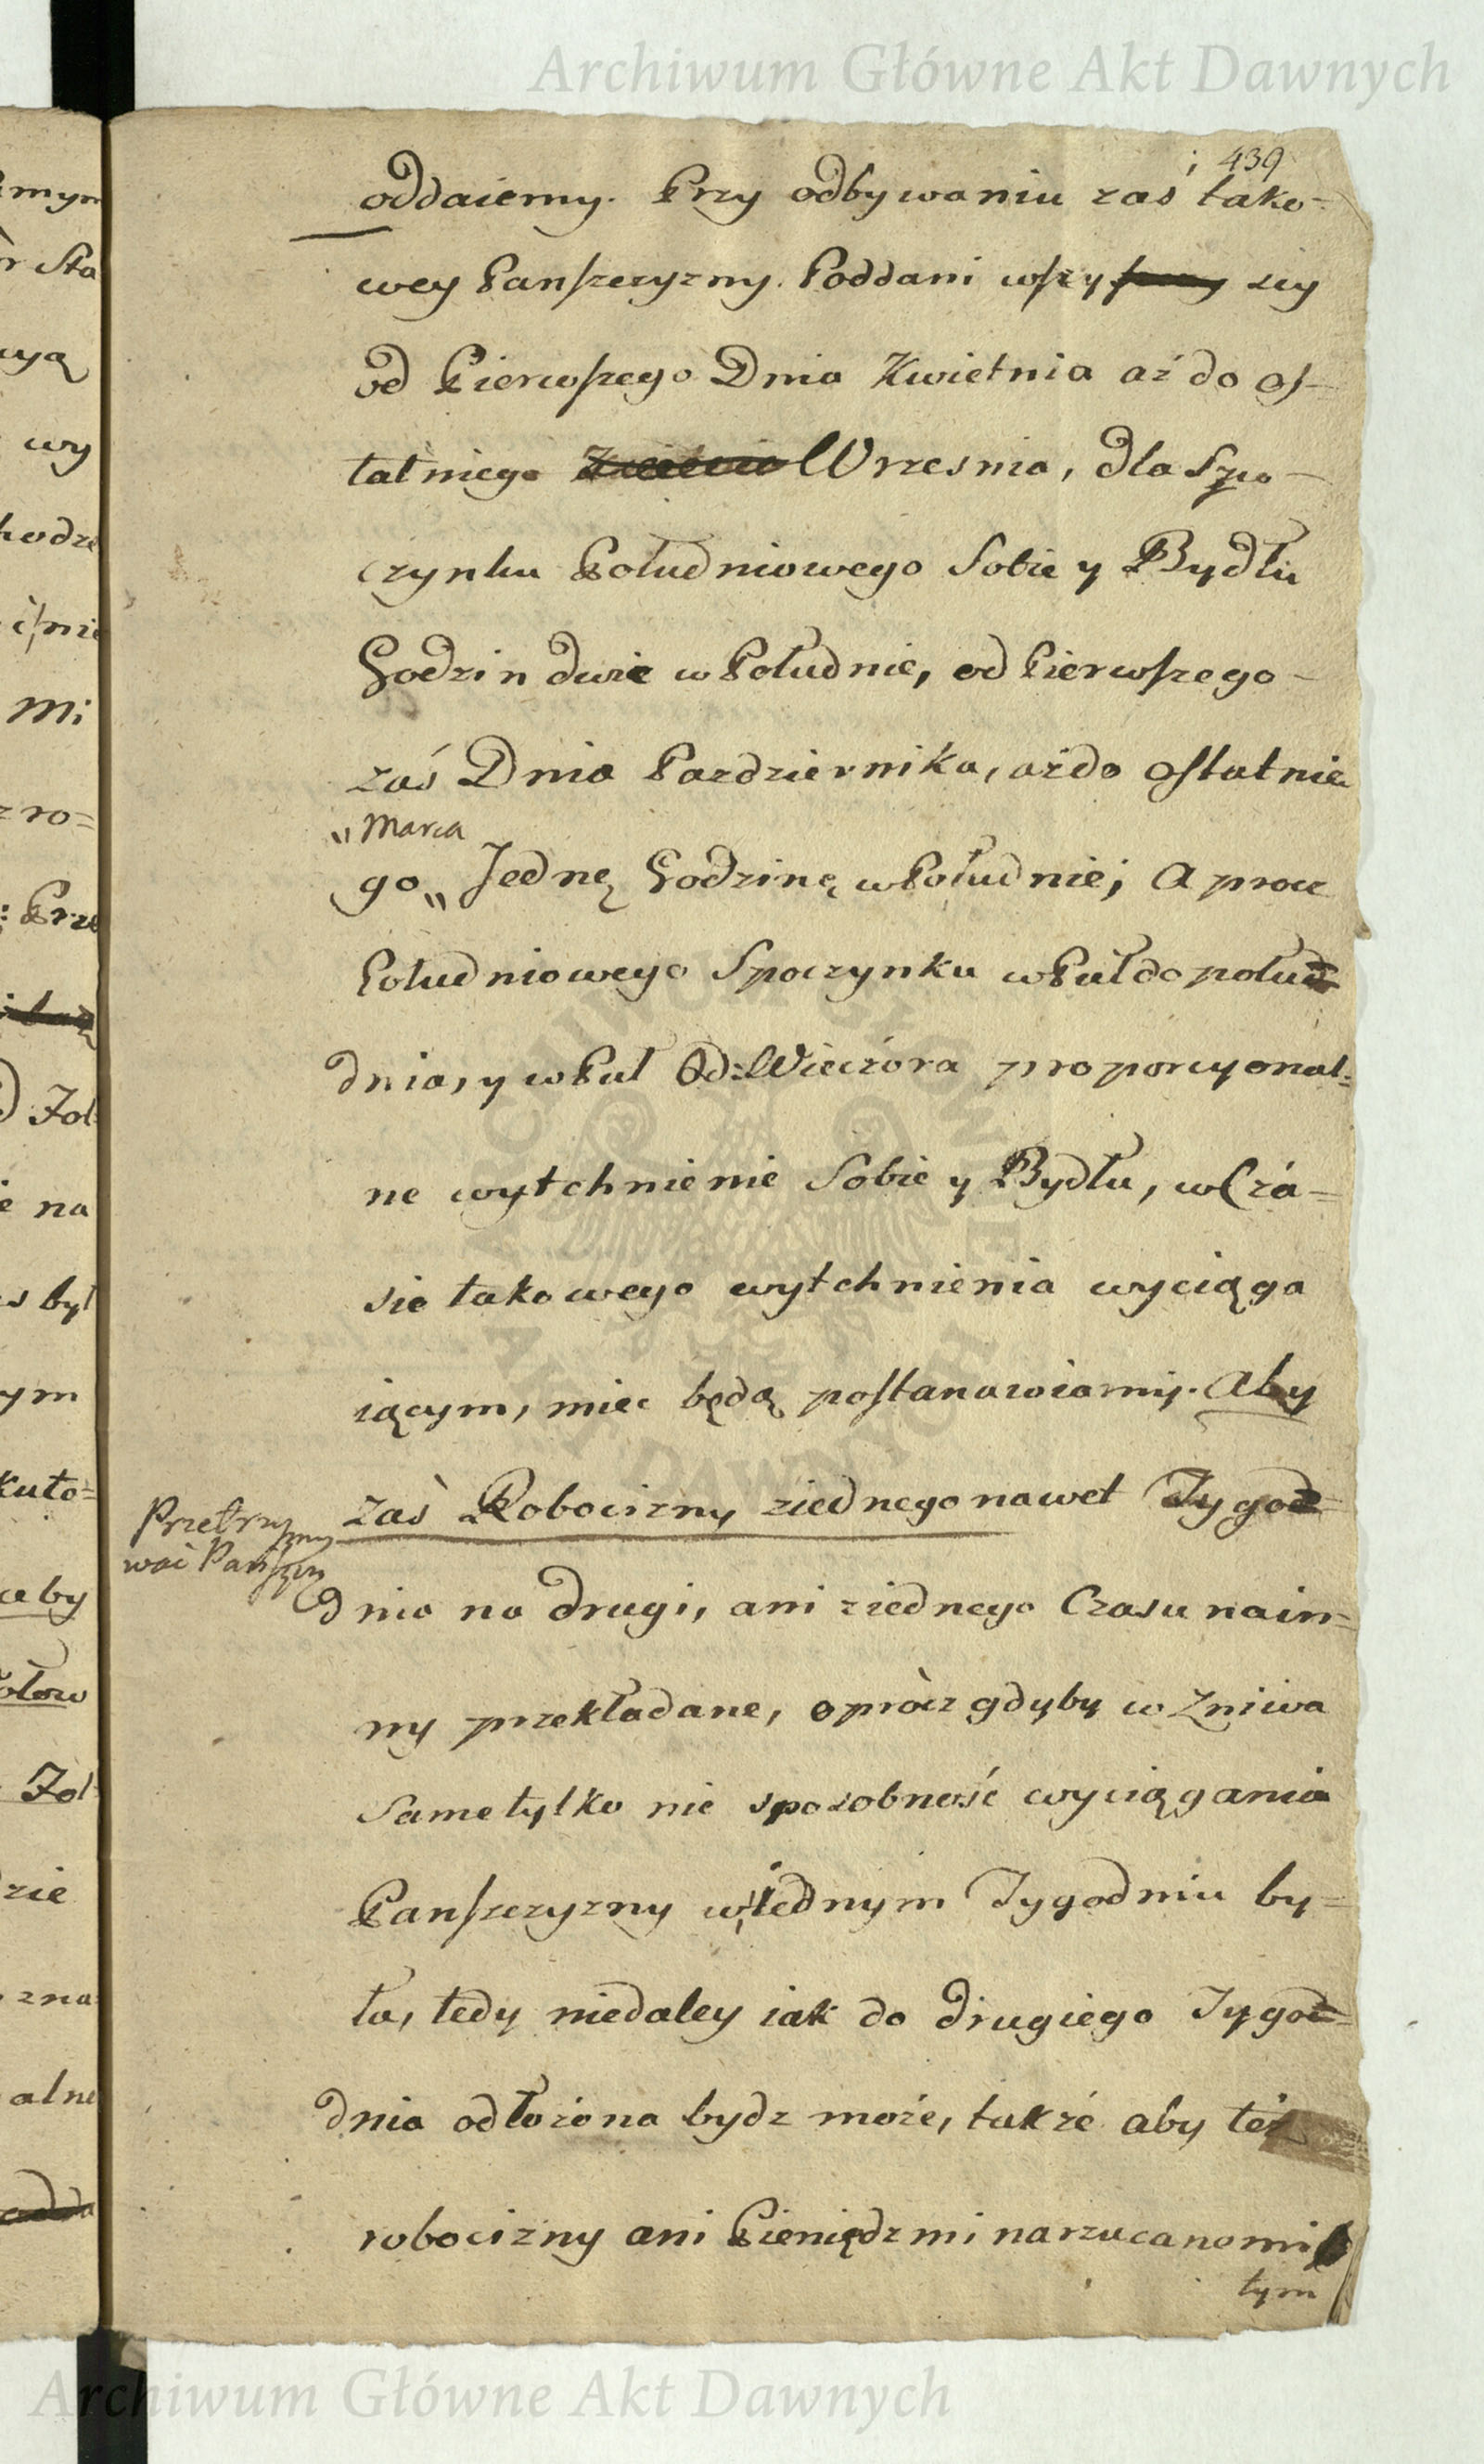 Archiwum Główne Akt Dawnych
439
oddaiemy. Przy odbywaniu zas tako-
wey Panszczyzny. Poddani wszy scy
od Pierwszego Dnia Kwietnia aż do os-
tatniego Wrzesnia, dla Spo-
czynku Południowego Sobie y Bydłu
Godzin dwie w Południe, od Pierwszego
zaś Dnia Pazdziernika, aż do ostatnie
"Marca
go" Jednę Godzinę w Południe; A procz
Południowego Spoczynku w Puł do połud
dnia, y w Puł Od: Wieczora proporcyonal=
ne wytchnienie Sobie y Bydłu, w Czá=
sie takowego wytchnienia wyciąga
iącym, miec będą postanawiamy. Aby
zaś Robocizny ziednego nawet Tygod=
Przetrzymy
wać Panszczy
dnia na drugi, ani ziednego Czasu nain=
ny przekładane, oprócz gdyby w Zniwa
Same tylko nie sposobność wyciągania
Panszczyzny w iednym Tygodniu by=
ła, tedy niedaley iak do drugiego Tygod=
dnia odłożona bydz może, także aby też
robocizny ani Pieniędzmi narzucanomi
tym
mym
Sta
cyą
wy
hodze
Mi
z ro=
: Prze
Zol
ie na
s był
ym
kuto=
aby
ołow
Zol
zie
zna
alne
ARCHIWUM GŁÓWNE
AKT DAWNYCH
Archiwum Główne Akt Dawnych